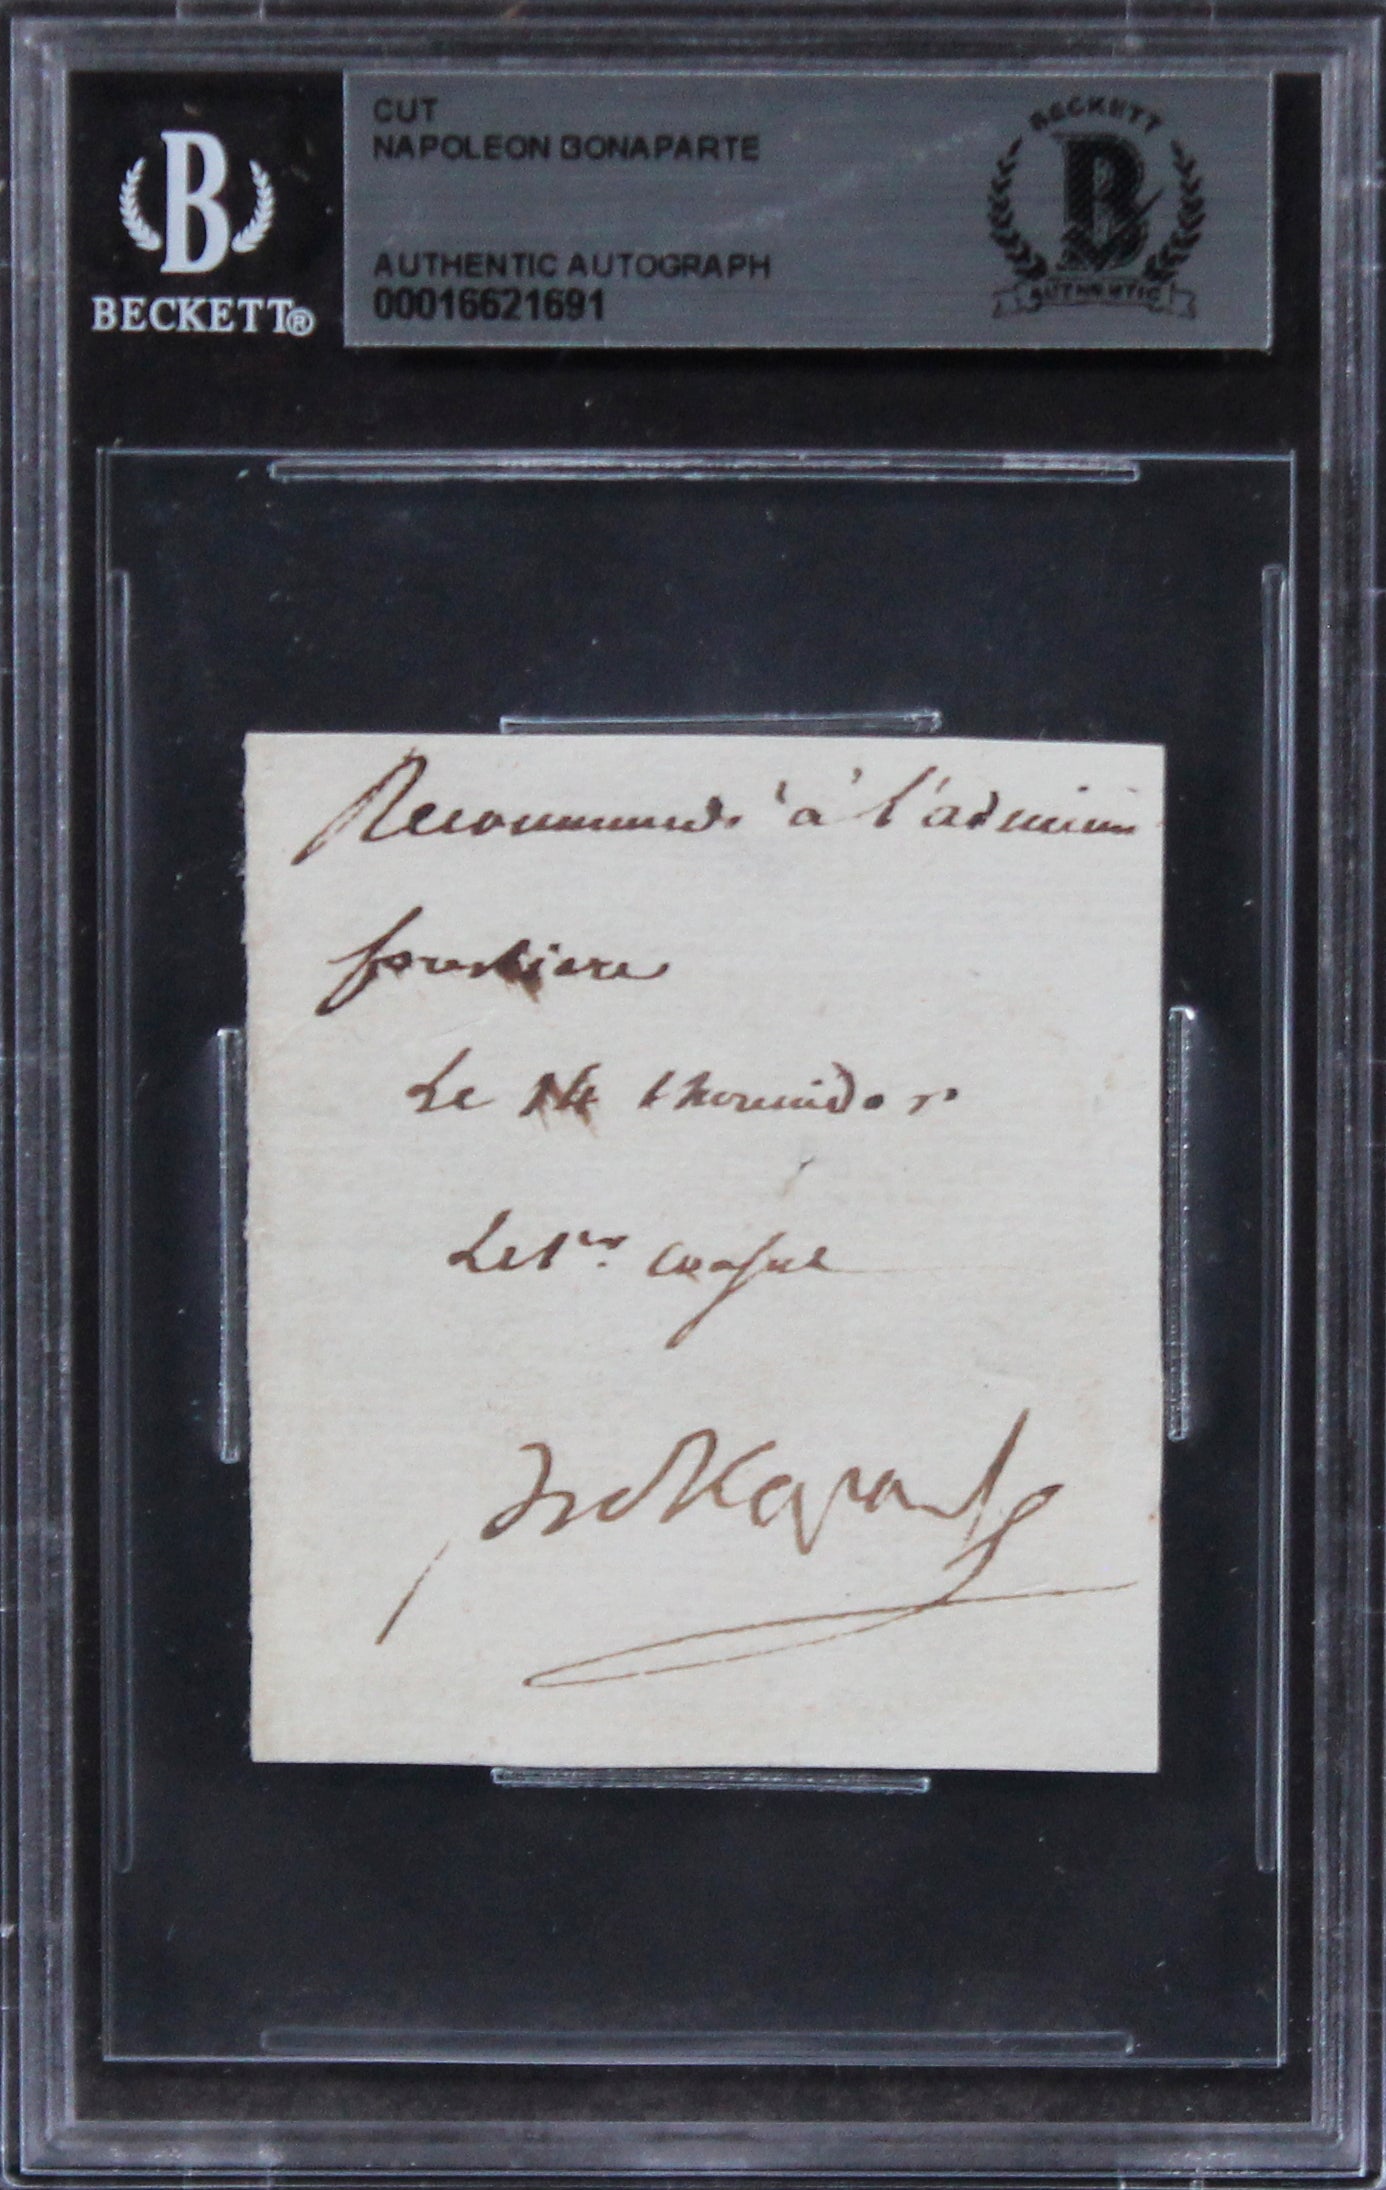 B
BECKETT®
CUT
NAPOLEON BONAPARTE
AUTHENTIC AUTOGRAPH
00016621691
BECKETT
B
AUTHENTIC
Recommandé à l'admini
forestiere
Le 14 thermidor
Le 1er consul
Bonaparte